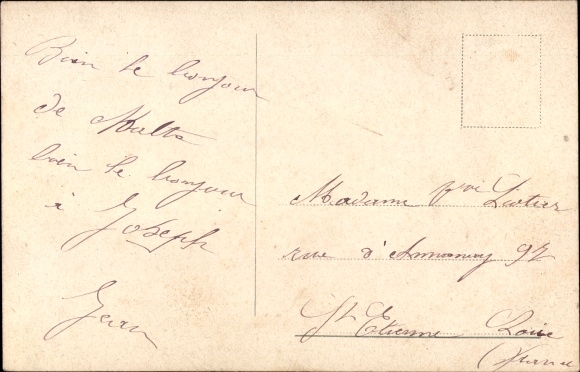 Bien le bonjour
de Malte
bien le bonjour
à Joseph
Jean
Madame Vve Liotier
rue d'Annonay 97
St Etienne Loire
(France